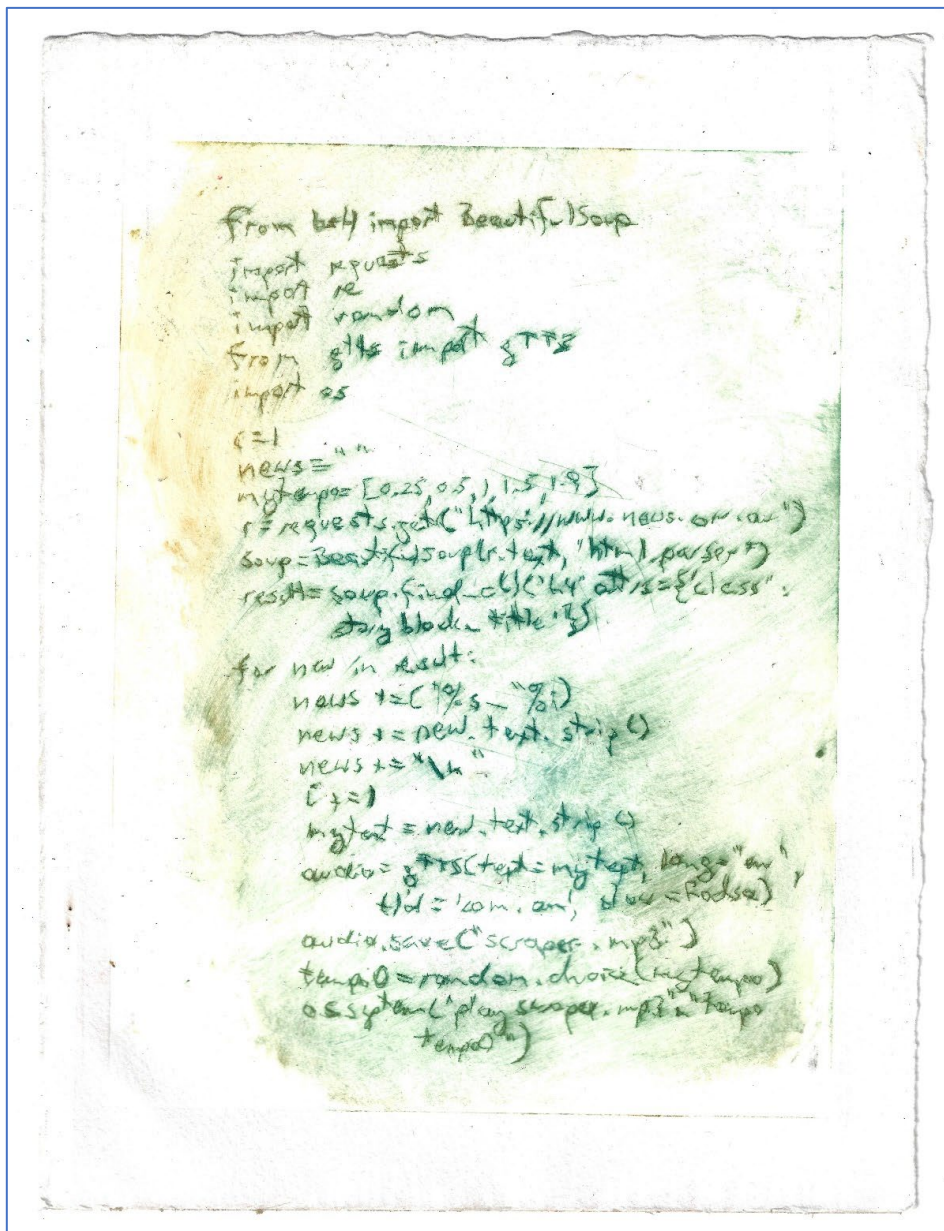 from bs4 import BeautifulSoup
import requests
import re
import random
from gtts import gTTS
import os
i=1
news=" "
mytempo=[0.25,0.5,1,1.5,1.9]
r=requests.get("https://www.news.com.au")
soup=BeautifulSoup(r.text,"html.parser")
result=soup.find_all("h4" attrs={"class":
title'})
for new in result:
news +=("%s_ "%i)
news +=new.text.strip()
news +="\n"
i+=1
mytext=new.text.strip()
audio=gTTS(text=mytext, lang="en",
tld='com.au', slow=False)
audio.save("scraper.mp3")
tempo0=random.choice(mytempo)
os.system("play scraper.mp3" "tempo